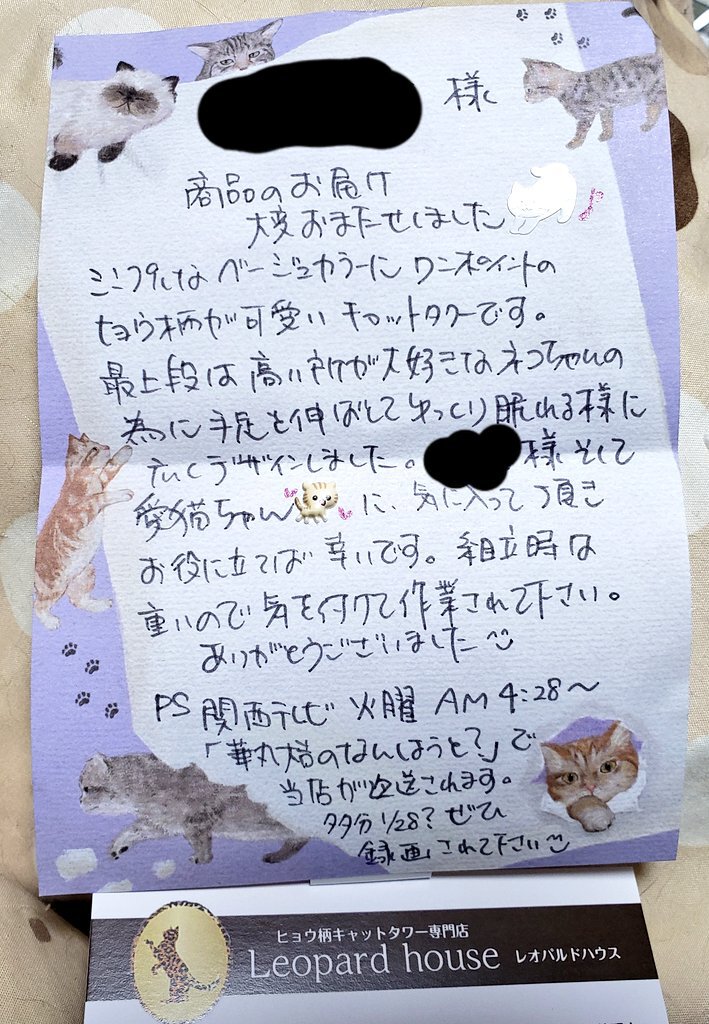 様
商品のお届け
大変おまたせしました
シンプルな ベージュカラーに ワンポイントの
ヒョウ柄が可愛い キャットタワーです。
最上段は 高い所が大好きなネコちゃんの
為に 手足を伸ばしてゆっくり眠れる様に
広くデザインしました。 様 そして
愛猫ちゃん に、気に入って頂き
お役に立てば 幸いです。 組立時は
重いので 気を付けて作業されて下さい。
ありがとうございました
PS 関西テレビ 火曜 AM 4:28〜
「華丸大吉のなんしようと?」で
当店が放送されます。
多分 1/28? ぜひ
録画 されて下さい
ヒョウ柄キャットタワー専門店
Leopard house レオパルドハウス